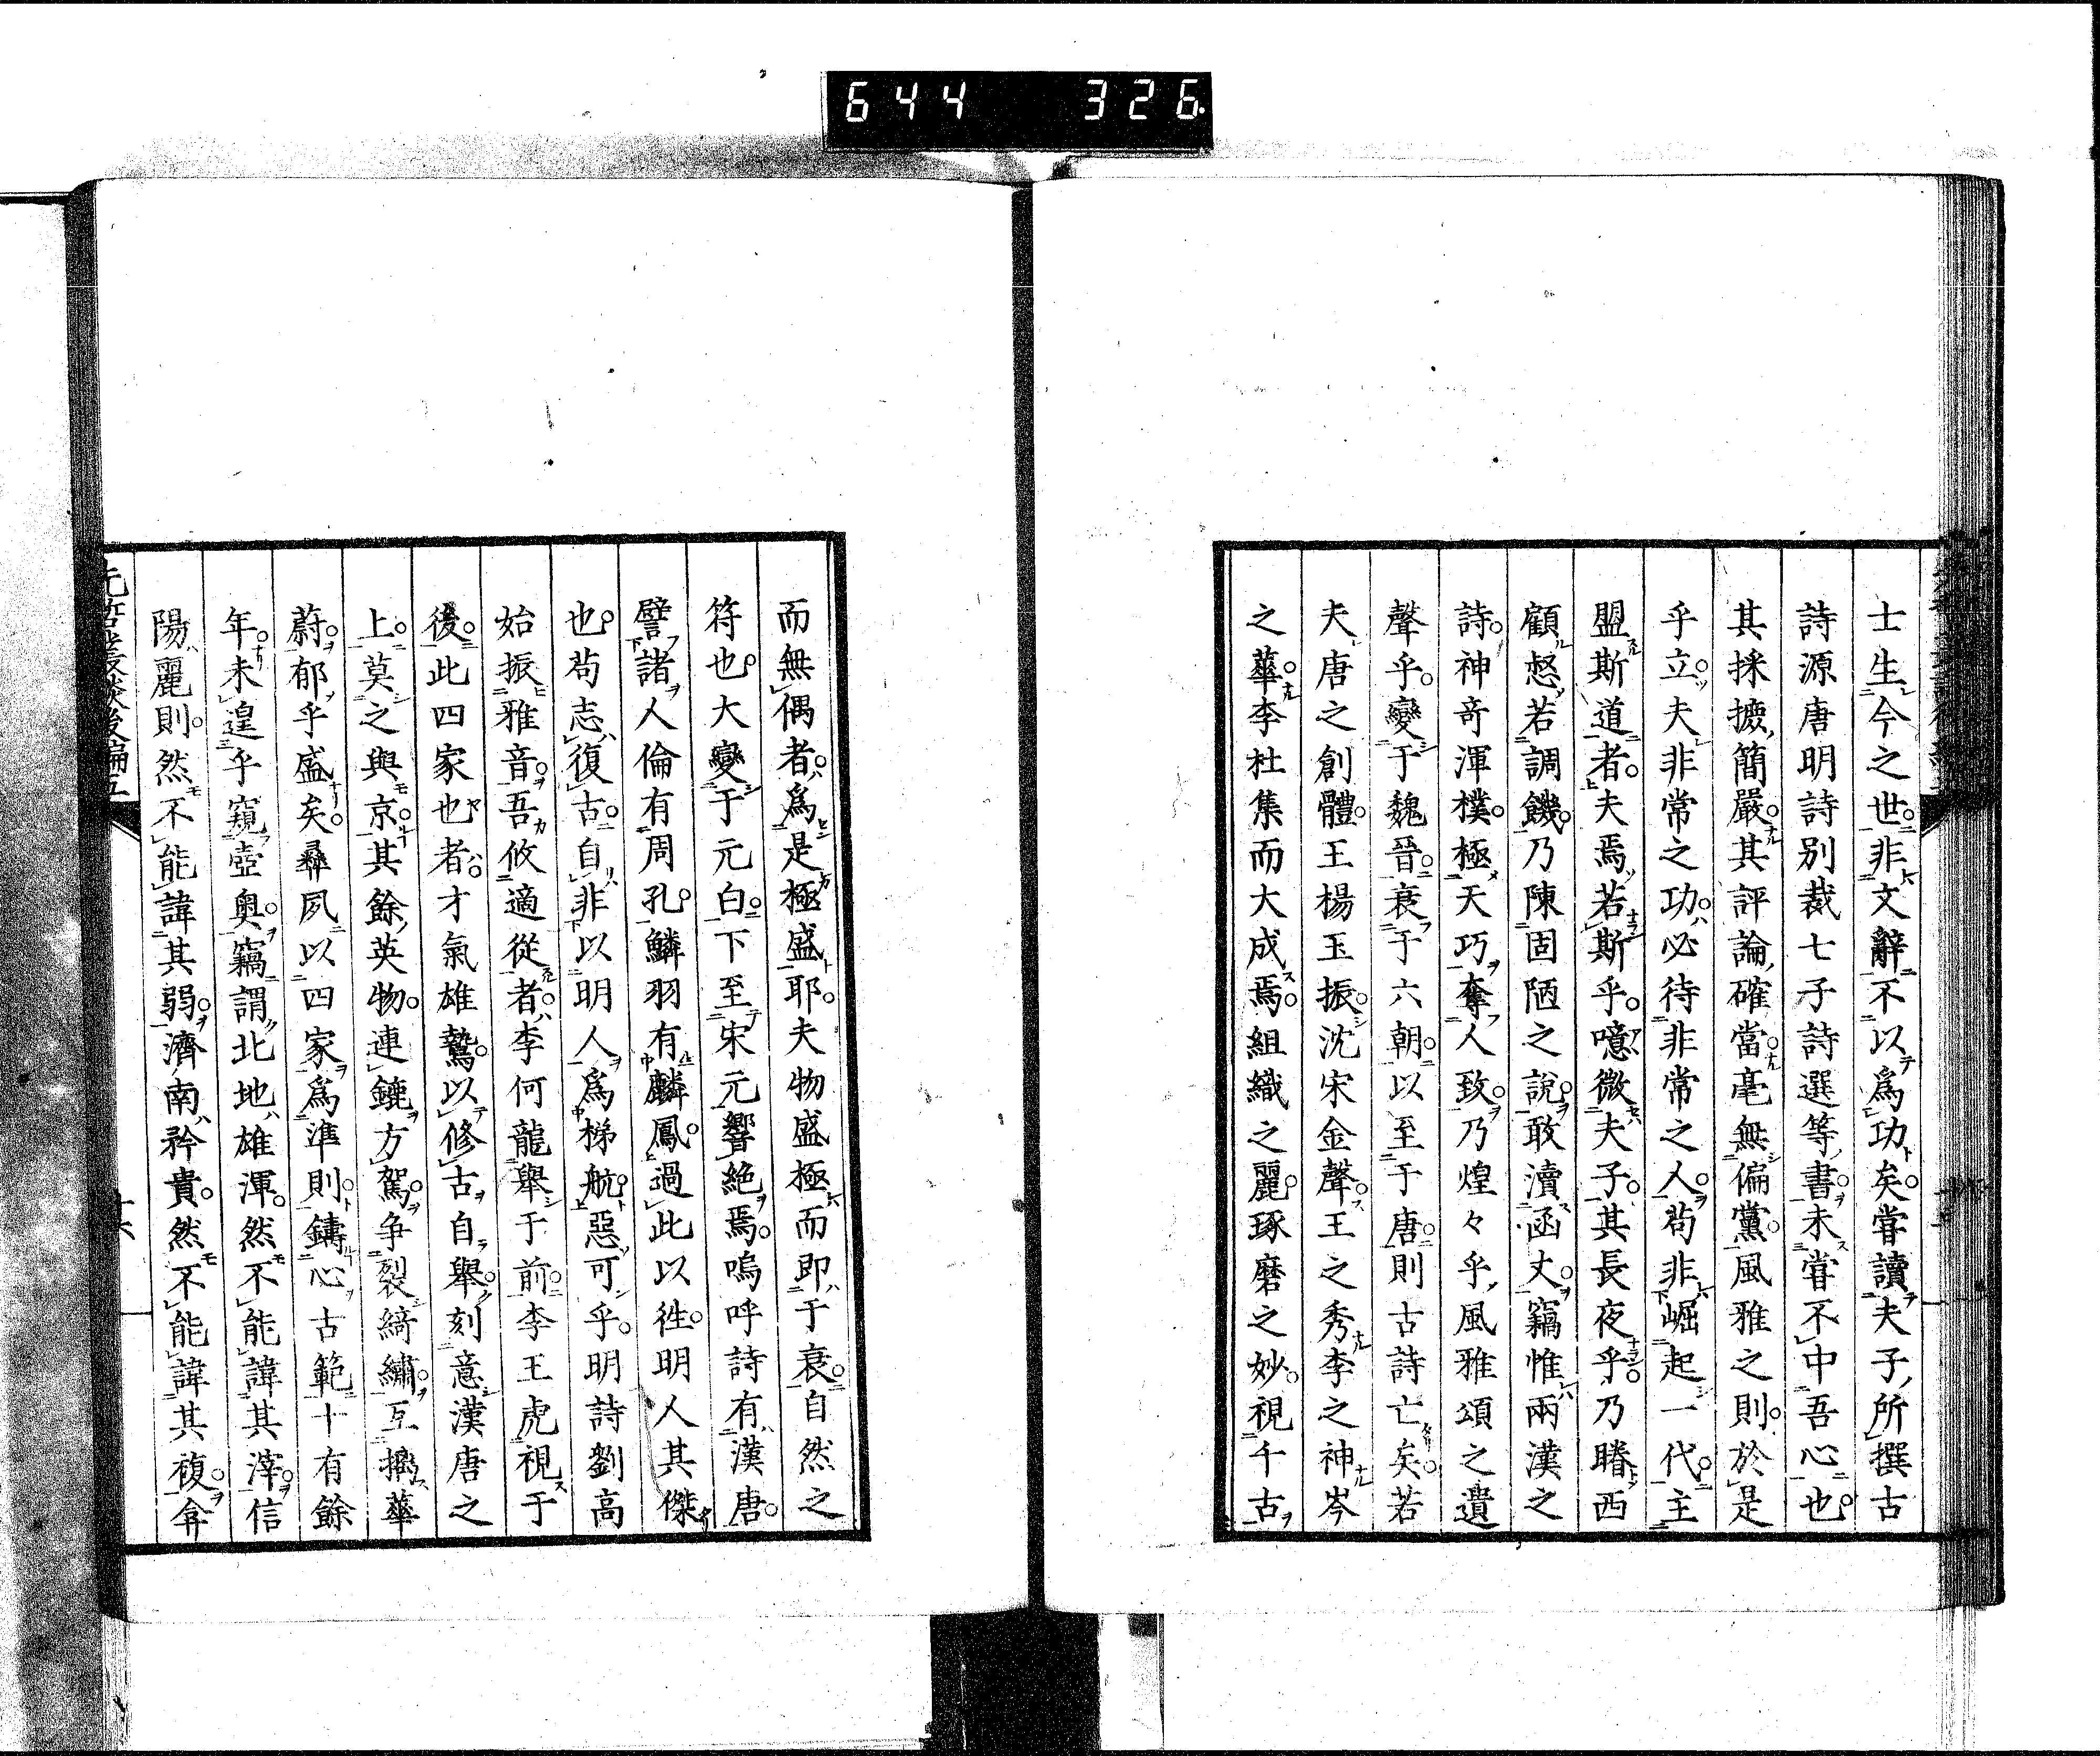 644 326
士生今之世非文辭不以爲功矣甞讀夫子所撰古
詩源唐明詩別裁七子詩選等書未甞不中吾心也
其採摭簡嚴其評論確當毫無偏黨風雅之則於是
乎立夫非常之功必待非常之人苟非崛起一代主
盟斯道者夫焉若斯乎噫微夫子其長夜乎乃睠西
顧惄若調饑乃陳固陋之說敢瀆函丈竊惟兩漢之
詩神奇渾樸極天巧奪人致乃煌々乎風雅頌之遺
聲乎變于魏晉衰于六朝以至于唐則古詩亡矣若
夫唐之創體王楊玉振沈宋金聲王之秀李之神岑
之華李杜集而大成焉組織之麗琢磨之妙視千古
而無偶者爲是極盛耶夫物盛極而即于衰自然之
符也大變于元白下至宋元響絶焉嗚呼詩有漢唐
譬諸人倫有周孔鱗羽有麟鳳過此以徃明人其傑
也苟志復古自非以明人爲梯航惡可乎明詩劉高
始振雅音吾攸適從者李何龍舉于前李王虎視于
後此四家也者才氣雄鷙以修古自舉刻意漢唐之
上莫之與京其餘英物連鑣方駕争裂綺繡互攡華
蔚郁乎盛矣彛夙以四家爲準則鑄心古範十有餘
年未遑乎窺壺奥竊謂北地雄渾然不能諱其滓信
陽麗則然不能諱其弱濟南矜貴然不能諱其複弇
先哲叢談後編五
六